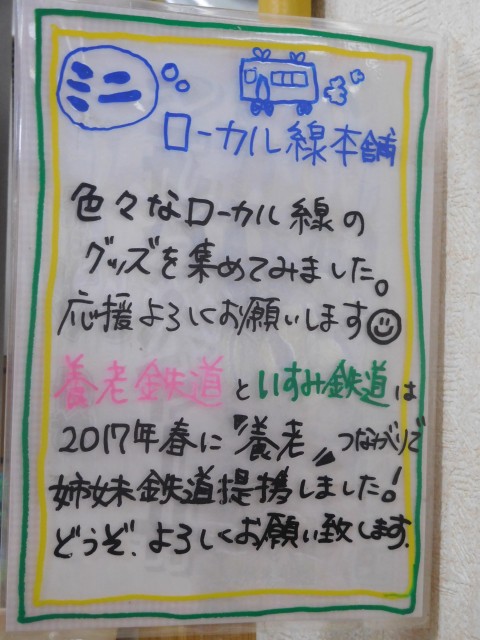 ミニ
ローカル線本舗
色々なローカル線の
グッズを集めてみました。
応援よろしくお願いします
養老鉄道といすみ鉄道は
2017年春に『養老』つながりで
姉妹鉄道提携しました!
どうぞ、よろしくお願い致します.